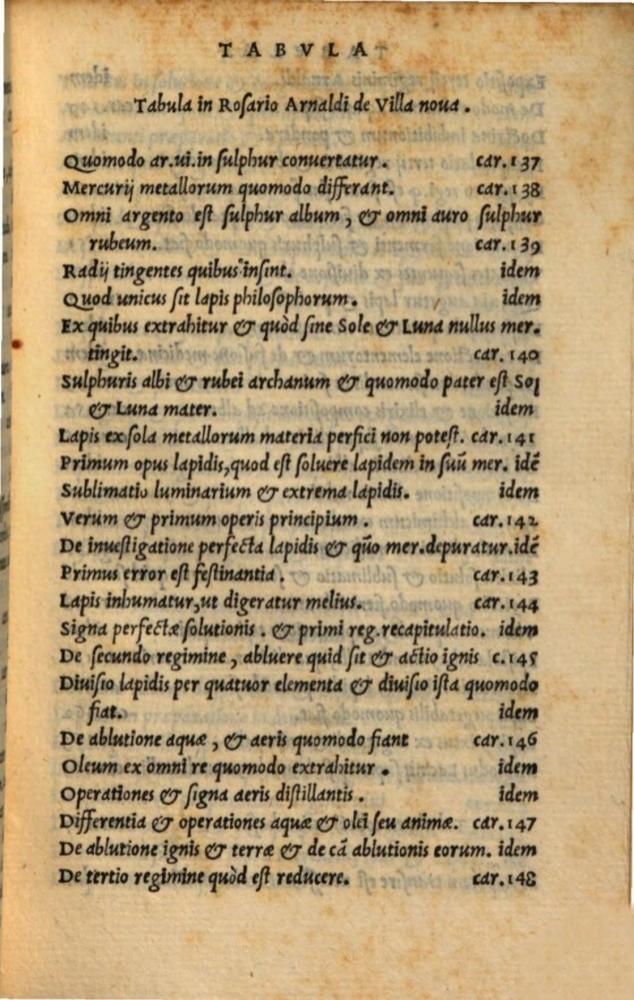 TABVLA
Tabula in Rosario Arnaldi de Villa noua.
Quomodo ar.ui.in sulphur conuertatur. car.137
Mercurij metallorum quomodo differant. car.138
Omni argento est sulphur album, & omni auro sulphur
rubeum. car.139
Radij tingentes quibus insint. idem
Quod unicus sit lapis philosophorum. idem
Ex quibus extrahitur & quòd sine Sole & Luna nullus mer.
tingit. car.140
Sulphuris albi & rubei archanum & quomodo pater est Sol
& Luna mater. idem
Lapis ex sola metallorum materia perfici non potest. car.141
Primum opus lapidis, quod est soluere lapidem in suũ mer. idẽ
Sublimatio luminarium & extrema lapidis. idem
Verum & primum operis principium. car.142
De inuestigatione perfecta lapidis & quõ mer.depuratur.idẽ
Primus error est festinantia. car.143
Lapis inhumatur, ut digeratur melius. car.144
Signa perfectæ solutionis. & primi reg.recapitulatio. idem
De secundo regimine, abluere quid sit & actio ignis c.145
Diuisio lapidis per quatuor elementa & diuisio ista quomodo
fiat. idem
De ablutione aquæ, & aeris quomodo fiant car.146
Oleum ex omni re quomodo extrahitur. idem
Operationes & signa aeris distillantis. idem
Differentia & operationes aquæ & olei seu animæ. car.147
De ablutione ignis & terræ & de cã ablutionis eorum. idem
De tertio regimine quòd est reducere. car.148